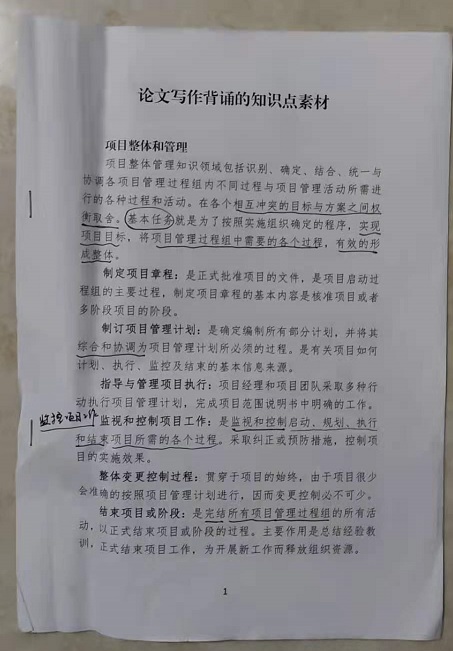 论文写作背诵的知识点素材
项目整体和管理
项目整体管理知识领域包括识别、确定、结合、统一与
协调各项目管理过程组内不同过程与项目管理活动所需进
行的各种过程和活动。在各个相互冲突的目标与方案之间权
衡取舍。基本任务就是为了按照实施组织确定的程序，实现
项目目标，将项目管理过程组中需要的各个过程，有效的形
成整体。
制定项目章程：是正式批准项目的文件，是项目启动过
程组的主要过程，制定项目章程的基本内容是核准项目或者
多阶段项目的阶段。
制订项目管理计划：是确定编制所有部分计划，并将其
综合和协调为项目管理计划所必须的过程。是有关项目如何
计划、执行、监控及结束的基本信息来源。
指导与管理项目执行：项目经理和项目团队采取多种行
动执行项目管理计划，完成项目范围说明书中明确的工作。
监控项目工作
监视和控制项目工作：是监视和控制启动、规划、执行
和结束项目所需的各个过程。采取纠正或预防措施，控制项
目的实施效果。
整体变更控制过程：贯穿于项目的始终，由于项目很少
会准确的按照项目管理计划进行，因而变更控制必不可少。
结束项目或阶段：是完结所有项目管理过程组的所有活
动，以正式结束项目或阶段的过程。主要作用是总结经验教
训，正式结束项目工作，为开展新工作而释放组织资源。
1